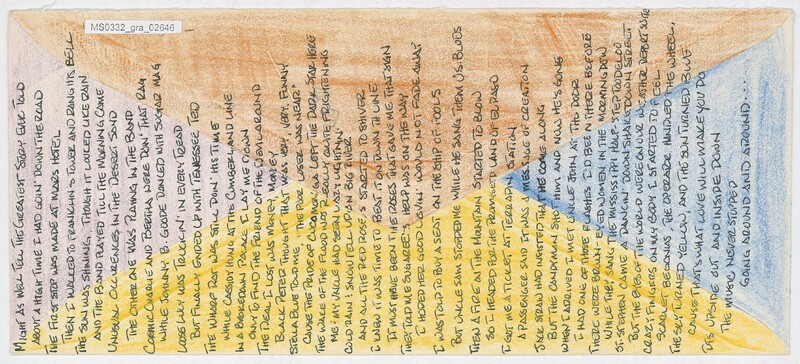 MIGHT AS WELL TELL THE GREATEST STORY EVER TOLD
ABOUT A HIGH TIME I HAD GOIN' DOWN THE ROAD
THE FIRST STOP WAS MADE AT MARS HOTEL
THEN I WALKED TO FRANKLIN'S TOWER AND RANG ITS BELL
THE SUN WAS SHINING, THOUGH IT LOOKED LIKE RAIN
AND THE BAND PLAYED TILL THE MORNING CAME
UNUSUAL OCCURENCES IN THE DESERT SAND
THE OTHER ONE WAS PLAYING IN THE BAND
COSMIC CHARLIE AND BERTHA WERE DOIN' THAT RAG
WHILE JOHNNY B. GOODE DANCED WITH SUGAR MAG
LOSE LUCY WAS TRUCKIN' IN EVERY TREAD
BUT FINALLY ENDED UP WITH TENNESSEE JED
THE WHARF RAT WAS STILL DOIN' HIS TIME
WHILE CASSIDY AT THE CUMBERLAND LINE
IN A BROKEDOWN PALACE I LAY ME DOWN
ONLY TO FIND THE FRIEND OF THE DEVIL AROUND
THE DEAL I LOST WAS MONEY, MONEY
BLACK PETER THOUGHT THAT WAS VERY, VERY, FUNNY
STELLA BLUE TOLD ME, THE POOR LOSER WAS NEAR
THE OF CUCAMONGA LEFT THE DARK STAR HERE
THE WAKE OF THE FLOOD WAS REALLY QUITE FRIGHTENING
ME + MY UNCLE HIDING FROM LIGHTNING
COLD RAIN & SNOW FELL INTO BLACK RIVER
AND ALL THE RED ROSES STARTED TO SHIVER
I KNEW IT WAS TIME TO BEAT IT ON DOWN TH LINE
IT MUST HAVE BEEN THE ROSES THAT GAVE ME THAT SIGN
THEY TOLD ME SUGAREE'S HELP WAS ON THE WAY
I HOPED HER GOOD LOVIN' WOULD NOT FADE AWAY
I WAS TOLD TO BUY A SEAT ON THE SHIP OF FOOLS
BUT UNCLE SAM STOPPED ME WHILE HE SANG THEM U.S. BLUES
THEN A FIRE IN THE MOUNTAIN STARTED TO BLOW
SO I HEADED FOR THE PROMISED LAND OF EL PASO
I GOT ME A TICKET AT TERRAPIN STATION
A PASSENGER SAID IT WAS A MESSAGE OF CREATION
JACK STRAW HAD INSISTED THAT HE COME ALONG
BUT THE CANDYMAN SHOT HIM AND NOW HE'S GONE
WHEN I ARRIVED I MET UNCLE JOHN AT THE DOOR
I HAD ONE OF THOSE FLASHES I'D BEEN THERE BEFORE
THERE WERE BROWN-EYED WOMEN IN THE MORNING DEW
WHILE THEY SANG THE MISSISSIPPI HALF-STEP TOODELOO
ST. STEPHEN CAME DANCIN' DOWN SHAKEDOWN STREET
BUT THE BIGS OF THE WORLD WERE ON OUR WEATHER REPORT SUITE
CRAZY FINGERS ON MY BODY I STARTED TO FEEL
SCARLET BEGONIAS THE OPERATOR HANDLED THE WHEEL,
THE SKY TURNED YELLOW, AND THE SUN TURNED BLUE
'CAUSE THAT'S WHAT LOVE WILL MAKE YOU DO
IT'S UPSIDE OUT AND INSIDE DOWN
THE MUSIC NEVER STOPPED
GOING AROUND AND AROUND...
MS0332_gra_02646